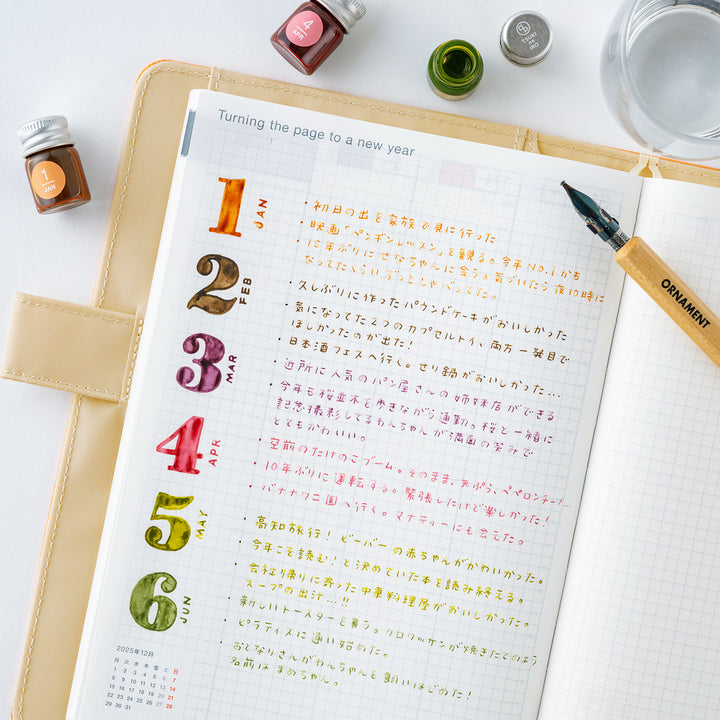 4
APR
TSUKI
no
IRO
1
JAN
Turning the page to a new year
ORNAMENT
1 JAN
・初日の出を家族で見に行った
・映画「ペンギンレッスン」を観る。今年NO.1かも
・10年ぶりにせなちゃんに会う。気づいたら夜10時に
なってたくらいずっとしゃべってた。
2 FEB
・久しぶりに作ったパウンドケーキがおいしかった
・気になってた2つのカプセルトイ、両方一発目で
ほしかったのが出た!
・日本酒フェスへ行く。せり鍋がおいしかった…
3 MAR
・近所に人気のパン屋さんの姉妹店ができる
・今年も桜並木を歩きながら運動。桜と一緒に
記念撮影してるわんちゃんが満面の笑みで
とてもかわいい。
4 APR
・空前のたけのこブーム。そのまま、天ぷら、ペペロンチーノ…
・10年ぶりに運転する。緊張したけど楽しかった!
・バナナワニ園へ行く。マナティーにも会えた。
5 MAY
・高知旅行! ビーバーの赤ちゃんがかわいかった。
・今年こそ読む!と決めていた本を読み終える。
・会社帰りに寄った中華料理屋がおいしかった。
スープの出汁…!!
6 JUN
・新しいトースターを買う。クロワッサンが焼きたてのよう
・ピラティスに通い始めた。
・おとなりさんがわんちゃんを飼いはじめた!
名前はまめちゃん。
2025年12月
月 火 水 木 金 土 日
1 2 3 4 5 6 7
8 9 10 11 12 13 14
15 16 17 18 19 20 21
22 23 24 25 26 27 28
29 30 31